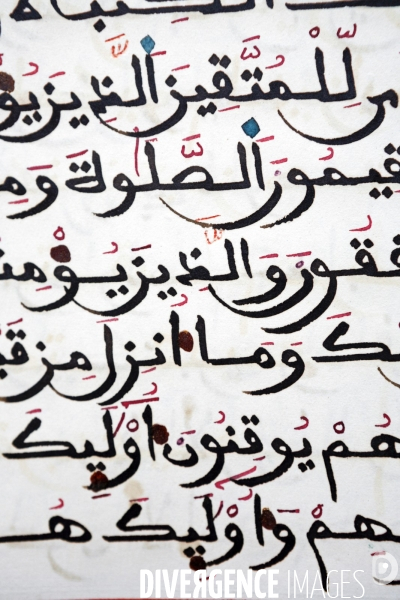 لِّلْمُتَّقِينَ الذِينَ يُو
قِيمُونَ الصَّلَوٰةَ وَمِ
فِقُونَ وَالذِينَ يُومِن
ـكَ وَمَا أُنزِلَ مِن قَب
هُمْ يُوقِنُونَ أُوْلَٰئِكَ
ـهِمْ وَأُوْلَٰئِكَ هُـ
DIVERGENCE IMAGES